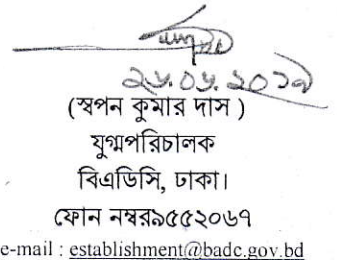 ২৬.০৬.২০১৯
(স্বপন কুমার দাস )
যুগ্মপরিচালক
বিএডিসি, ঢাকা।
ফোন নম্বর৯৫৫২০৬৭
e-mail : establishment@badc.gov.bd